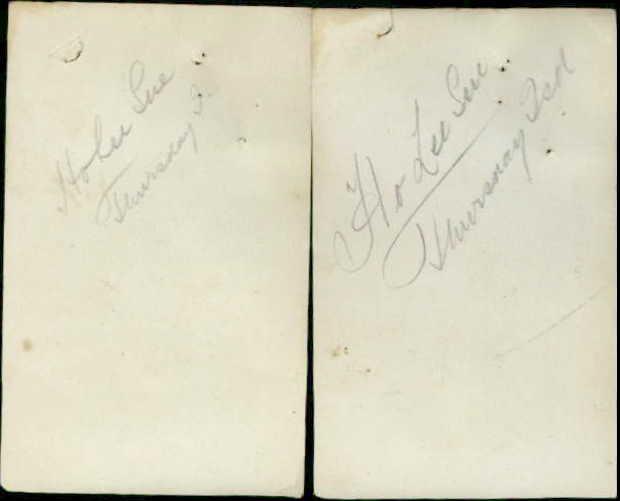 Ho Lee Sue
Thursday
Ho Lee Suu
Thursday Is